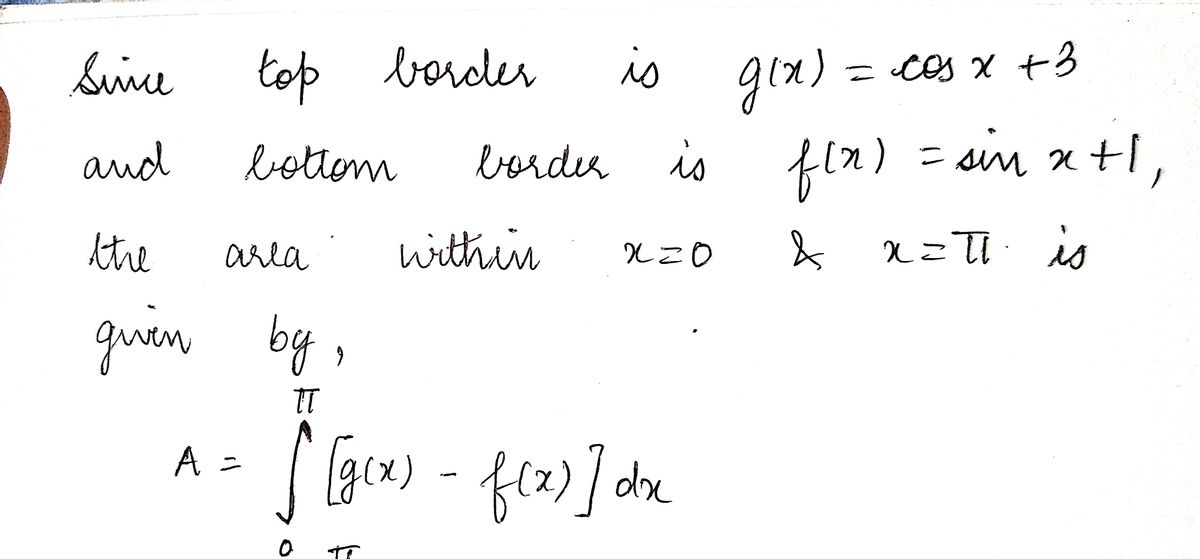 Since top border is g(x) = cos x + 3
and bottom border is f(x) = sin x + 1,
the area within x = 0 & x = π is
given by,
π
A = ∫ [g(x) - f(x)] dx
0 π